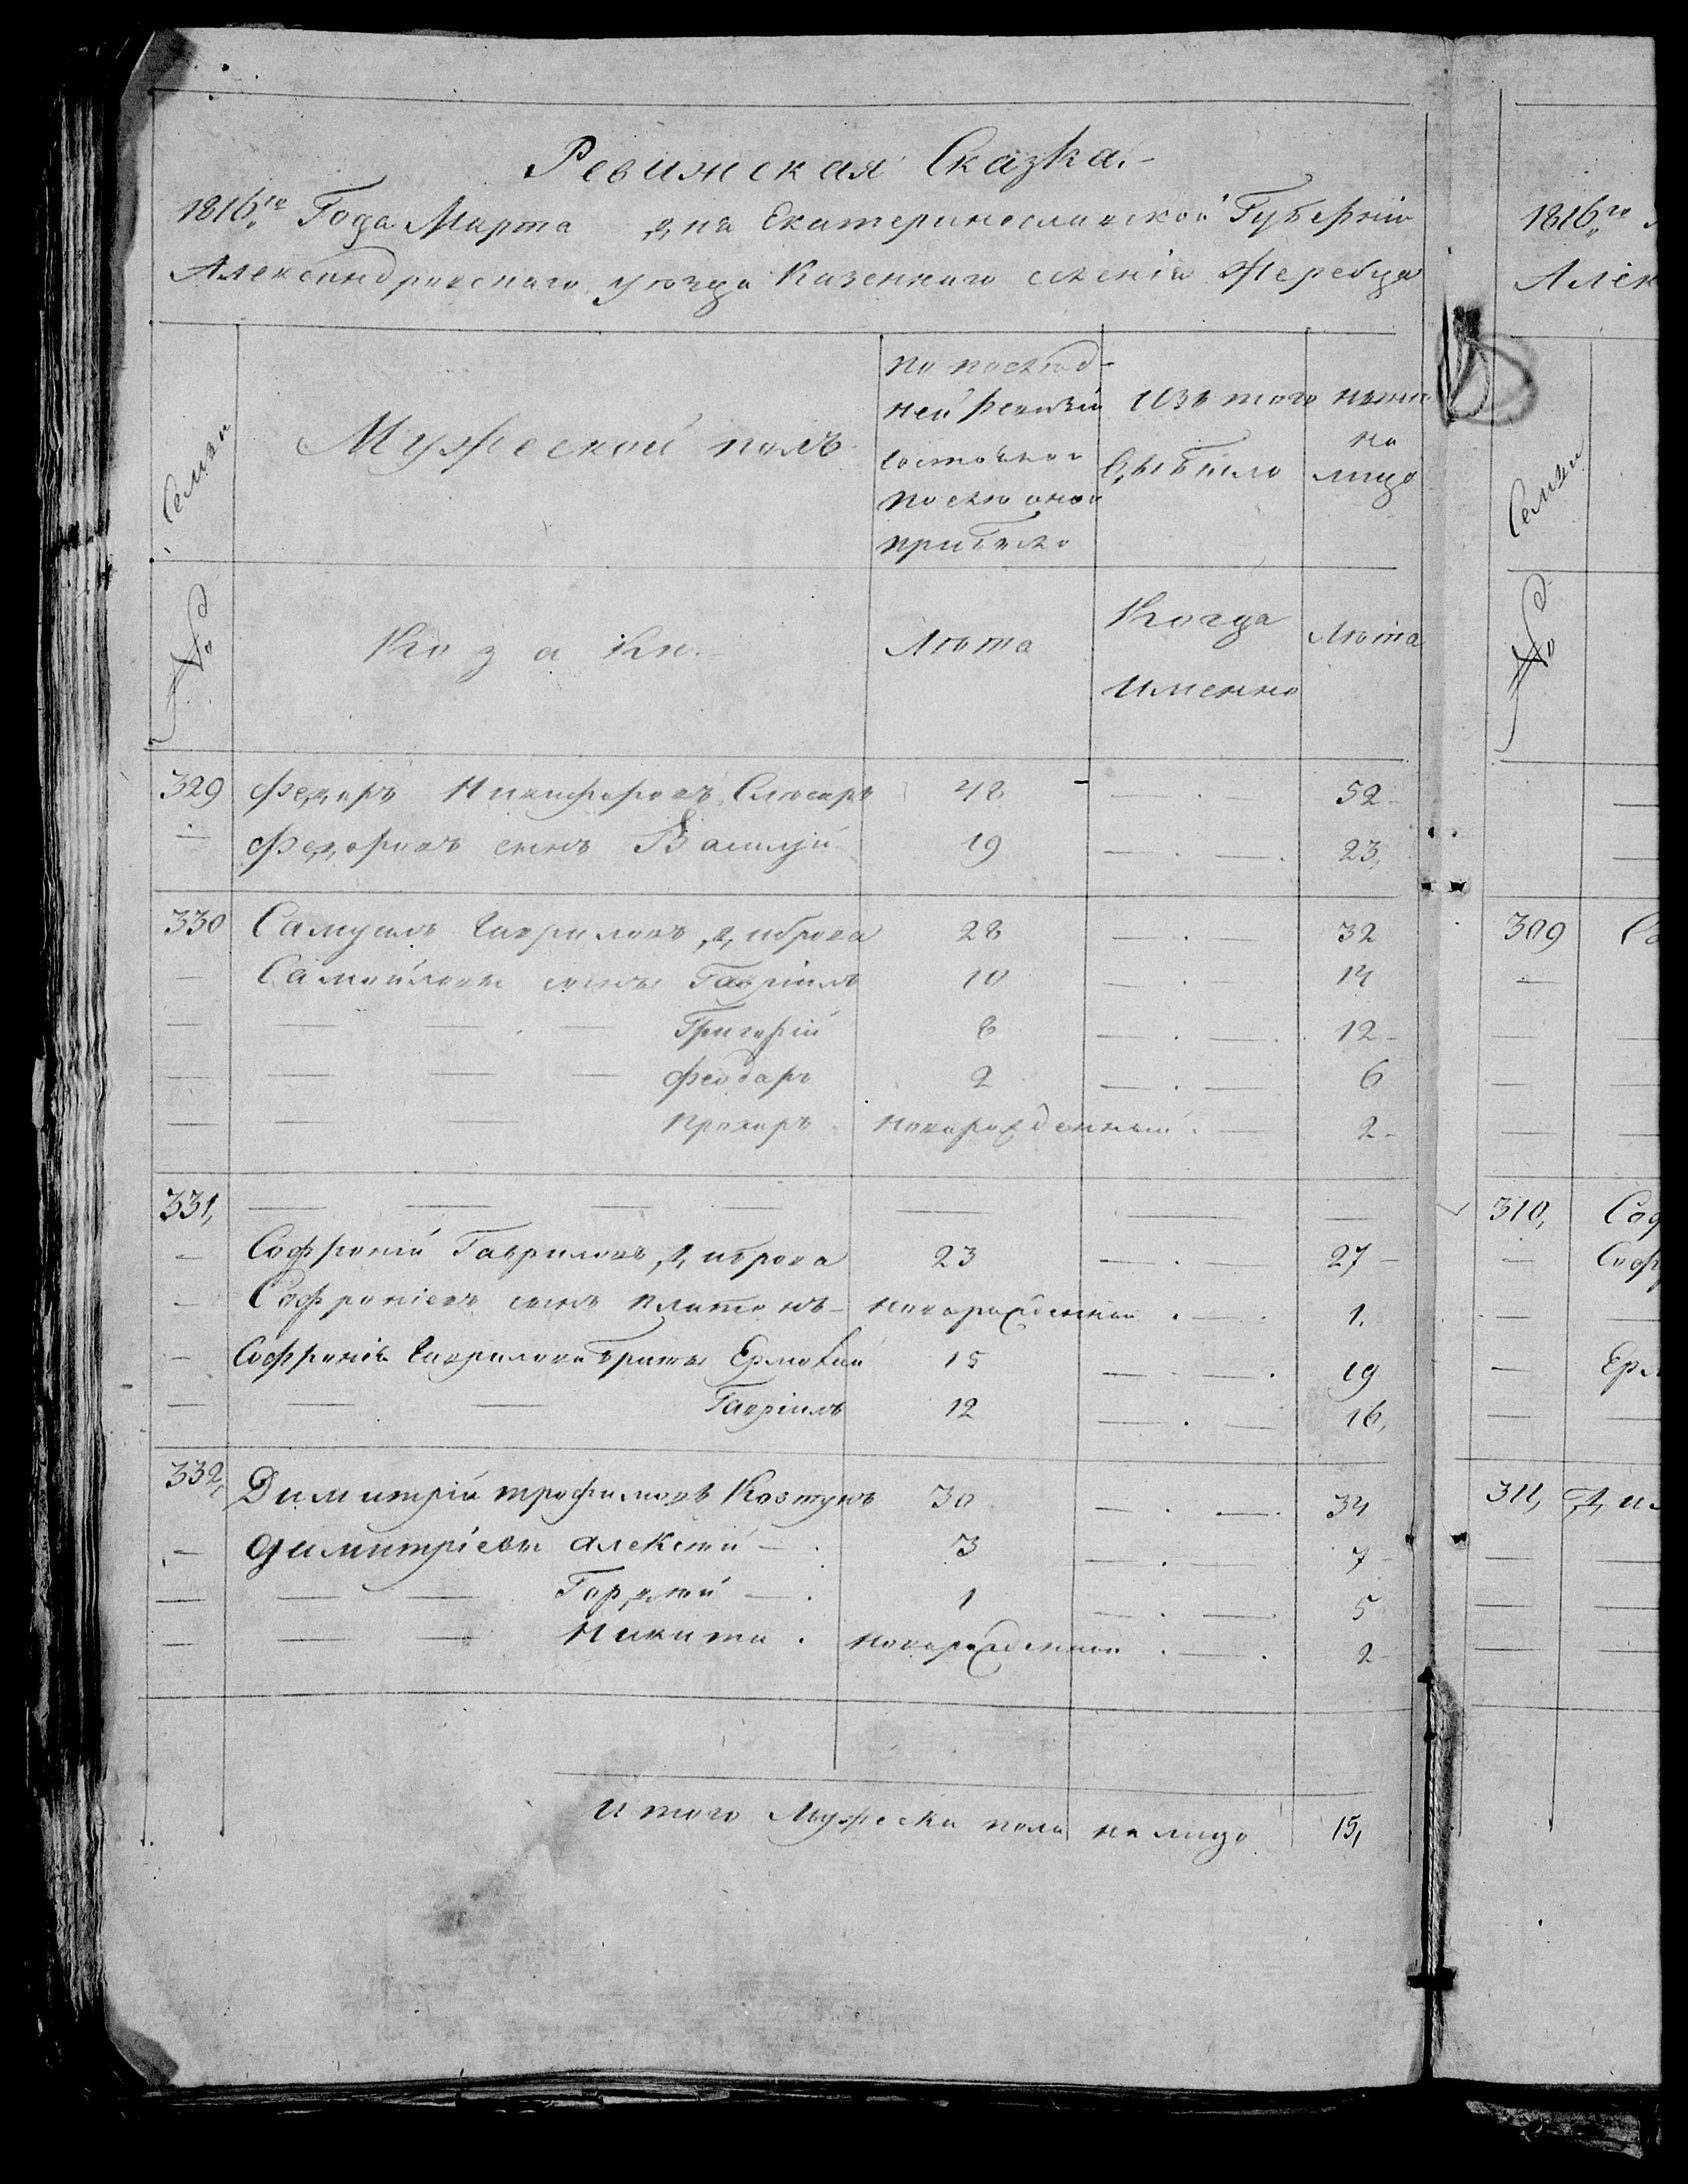 Ревижская Сказка.
1816го Года Марта дня Екатеринославской Губернiи
Александровского уезда Казенного селенiя Жеребца
№ Семьи
Мужеской полъ
По послед-
ней Ревизiи
состояло и
после оной
прибыло
Изъ того
выбыло
ныне
на
лицо
Козаки.
Лѣта
Когда
Именно
Лѣта
329 Федоръ Никифоровъ Слюсаръ 48 — . — 52
— Федоровъ сынъ Василiй 19 — . — 23
330 Самуилъ Гавриловъ Диброва 28 — . — 32
— Самойловы сыны Гаврiилъ 10 — . — 14
— — — — Григорiй 8 — . — 12
— — — — Феодаръ 2 — . — 6
— — — Прохоръ Новорожденный . — 2
331, — — — — — — —
— Софронiй Гавриловъ Диброва 23 — . — 27
— Софронiевъ сынъ Платонъ Новорожденный . — . 1.
— Софронiя Гаврилова Братья Ермолай 15 — . — . 19
— — — Гаврiилъ 12 — . — 16,
332, Димитрiй трофимовъ Ковтунъ 30 — . — 34
— Димитрiевы Алексей — . 3 — . — 7
— — — Гордей — . 1 — . — 5
— — — Никита . Новорожденный . — . 2
Итого Мужеска пола на лицо 15,
1816го
Алек
№ Семьи
309 Са
310, Соф
Софр
Ерм
311, Ди